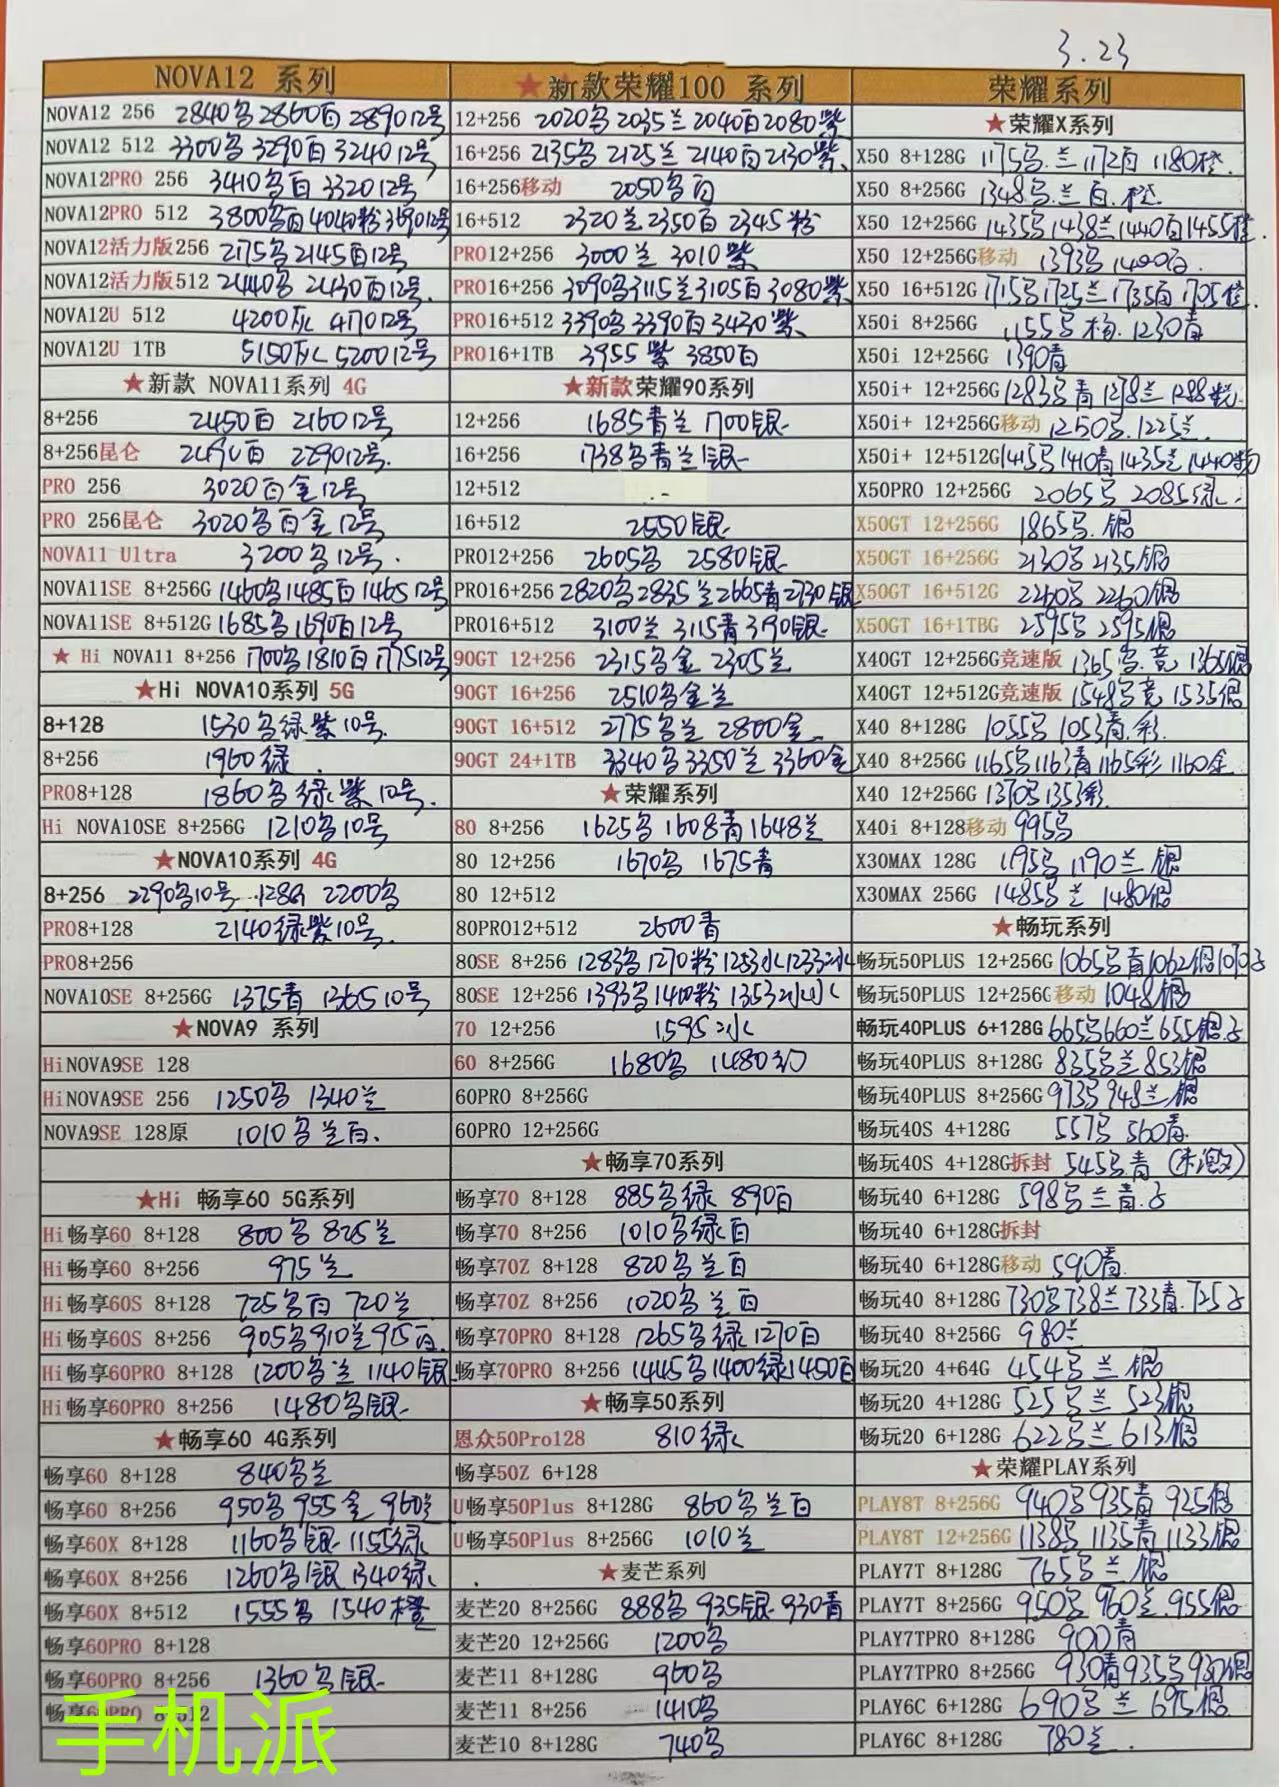 3.23
NOVA12 系列
NOVA12 256 2840乌 2860白 2890 12号
NOVA12 512 3300乌 3290白 3240 12号
NOVA12PRO 256 3410乌白 3320 12号
NOVA12PRO 512 3800乌白 4040粉 3690 12号
NOVA12活力版256 2175乌 2145白 12号
NOVA12活力版512 2440乌 2430白 12号.
NOVA12U 512 4200灰 4170 12号
NOVA12U 1TB 5150灰 5200 12号
★新款 NOVA11系列 4G
8+256 2450白 2160 12号
8+256昆仑 2290 12号.
PRO 256 3020白金 12号
PRO 256昆仑 3020乌白金 12号
NOVA11 Ultra 3200乌 12号.
NOVA11SE 8+256G 1460乌 1485白 1465 12号
NOVA11SE 8+512G 1685乌 1690白 12号
★ Hi NOVA11 8+256 1700乌 1810白 1775 12号
★Hi NOVA10系列 5G
8+128 1530乌绿紫 10号.
8+256 1960绿.
PRO8+128 1860乌绿紫 10号.
Hi NOVA10SE 8+256G 1210乌 10号
★NOVA10系列 4G
8+256 2290乌 10号 128G 2200乌
PRO8+128 2140绿紫 10号.
PRO8+256
NOVA10SE 8+256G 1375青 1365 10号
★NOVA9 系列
HiNOVA9SE 128
HiNOVA9SE 256 1250乌 1340兰
NOVA9SE 128原 1010乌兰白.
★Hi 畅享60 5G系列
Hi畅享60 8+128 800乌 825兰
Hi畅享60 8+256 975兰
Hi畅享60S 8+128 725乌白 720兰
Hi畅享60S 8+256 905乌 910兰 915白.
Hi畅享60PRO 8+128 1200乌兰 1140银
Hi畅享60PRO 8+256 1480乌银
★畅享60 4G系列
畅享60 8+128 840乌兰
畅享60 8+256 950乌 955金 960兰
畅享60X 8+128 1160乌银 1155绿
畅享60X 8+256 1260乌银 1340绿
畅享60X 8+512 1555乌 1540橙
畅享60PRO 8+128
畅享60PRO 8+256 1360乌银
畅享60PRO 8+512
手机派
★新款荣耀100 系列
12+256 2020乌 2035兰 2040白 2080紫
16+256 2135乌 2125兰 2140白 2130紫
16+256移动 2050乌白
16+512 2320兰 2350白 2345粉
PRO12+256 3000兰 3010紫
PRO16+256 3090乌 3115兰 3105白 3080紫
PRO16+512 3390乌 3390白 3430紫
PRO16+1TB 3955紫 3850白
★新款荣耀90系列
12+256 1685青兰 1700银
16+256 1738乌青兰银
12+512
16+512 2550银
PRO12+256 2605乌 2580银
PRO16+256 2820乌 2835兰 2665青 2730银
PRO16+512 3100兰 3115青 3190银
90GT 12+256 2315乌金 2305兰
90GT 16+256 2510乌金兰
90GT 16+512 2775乌兰 2800金
90GT 24+1TB 3340乌 3350兰 3360金
★荣耀系列
80 8+256 1625乌 1608青 1648兰
80 12+256 1670乌 1675青
80 12+512
80PRO12+512 2600青
80SE 8+256 1283乌 1270粉 1253冰 1233冰
80SE 12+256 1393乌 1410粉 1353冰
70 12+256 1595冰
60 8+256G 1680乌 1480幻
60PRO 8+256G
60PRO 12+256G
★畅享70系列
畅享70 8+128 885乌绿 890白
畅享70 8+256 1010乌绿白
畅享70Z 8+128 820乌兰白
畅享70Z 8+256 1020乌兰白
畅享70PRO 8+128 1265乌绿 1270白
畅享70PRO 8+256 1445乌 1400绿 1450白
★畅享50系列
恩众50Pro128 810绿
畅享50Z 6+128
U畅享50Plus 8+128G 860乌兰白
U畅享50Plus 8+256G 1010兰
★麦芒系列
麦芒20 8+256G 888乌 935银 930青
麦芒20 12+256G 1200乌
麦芒11 8+128G 960乌
麦芒11 8+256 1410乌
麦芒10 8+128G 740乌
荣耀系列
★荣耀X系列
X50 8+128G 1175乌.兰 1172白 1180橙.
X50 8+256G 1348乌兰白.橙
X50 12+256G 1435乌 1438兰 1440白 1455橙.
X50 12+256G移动 1393乌 1400白.
X50 16+512G 1715乌 1725兰 1735白 1705橙.
X50i 8+256G 1155乌 粉. 1230青
X50i 12+256G 1390青
X50i+ 12+256G 1283乌青 1278兰 1288粉
X50i+ 12+256G移动 1250乌. 1225兰.
X50i+ 12+512G 1415乌 1410青 1435兰 1440粉
X50PRO 12+256G 2065乌 2085绿
X50GT 12+256G 1865乌.银
X50GT 16+256G 2130乌 2135银
X50GT 16+512G 2240乌 2260银
X50GT 16+1TBG 2595乌 2595银
X40GT 12+256G竞速版 1365乌.竞 1365银
X40GT 12+512G竞速版 1548乌竞 1535银
X40 8+128G 1055乌 1053青.彩.
X40 8+256G 1165乌 1163青 1165彩 1160金
X40 12+256G 1370乌 1353彩.
X40i 8+128移动 995乌
X30MAX 128G 1195乌 1190兰 银
X30MAX 256G 1485乌兰 1480银
★畅玩系列
畅玩50PLUS 12+256G 1065乌青 1062银
畅玩50PLUS 12+256G移动 1048银
畅玩40PLUS 6+128G 665乌 660兰 655银.子
畅玩40PLUS 8+128G 835乌兰 853银
畅玩40PLUS 8+256G 973乌 948兰 银
畅玩40S 4+128G 557乌 560青.
畅玩40S 4+128G拆封 545乌.青 (未激)
畅玩40 6+128G 598乌兰青.子
畅玩40 6+128G拆封
畅玩40 6+128G移动 590青.
畅玩40 8+128G 730乌 738兰 733青.725子
畅玩40 8+256G 980兰
畅玩20 4+64G 454乌兰.银
畅玩20 4+128G 525乌兰 523银
畅玩20 6+128G 622乌兰 613银
★荣耀PLAY系列
PLAY8T 8+256G 940乌 935青 925银
PLAY8T 12+256G 1138乌 1135青 1133银
PLAY7T 8+128G 765乌兰.银
PLAY7T 8+256G 950乌 960兰.955银
PLAY7TPRO 8+128G 900青
PLAY7TPRO 8+256G 930青 935乌 930银
PLAY6C 6+128G 690乌兰 695银
PLAY6C 8+128G 780兰.